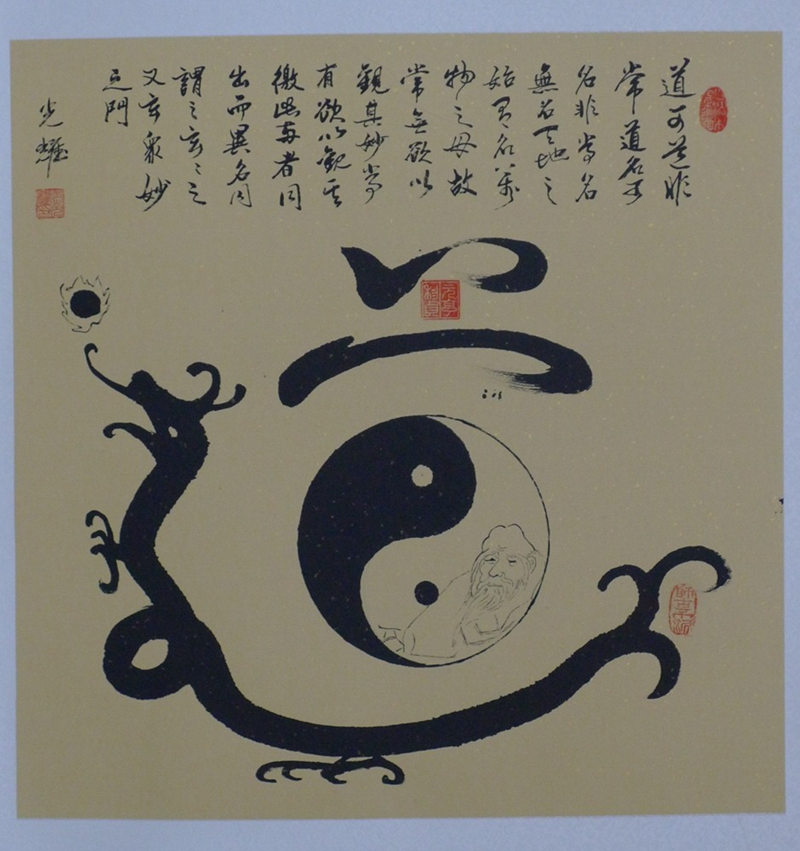 道可道非
常道名可
名非常名
無名天地之
始有名萬
物之母故
常無欲以
觀其妙常
有欲以觀其
徼此两者同
出而異名同
謂之玄〻之
又玄眾妙
之門
道
元亨利貞